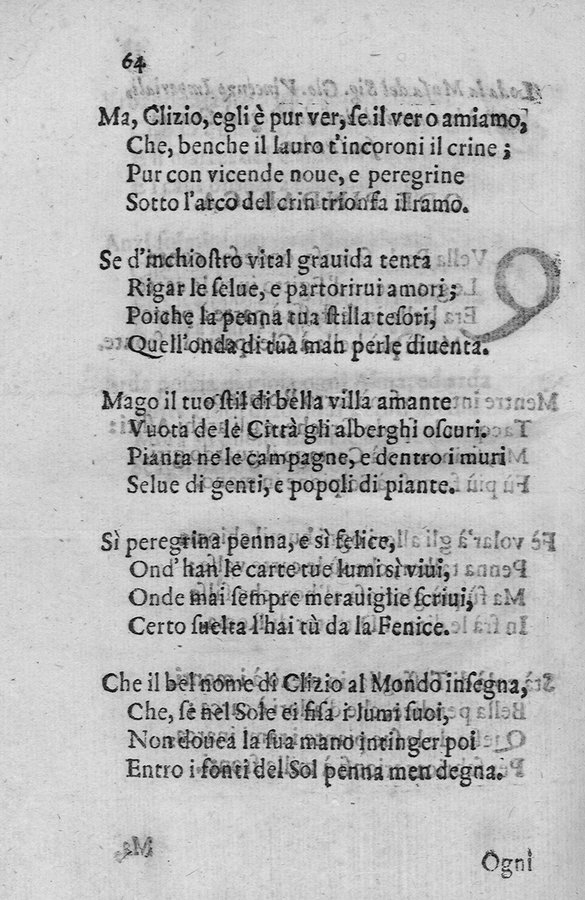 64
Ma, Clizio, egli è pur ver, ſe il vero amiamo,
Che, benche il lauro t'incoroni il crine;
Pur con vicende noue, e peregrine
Sotto l'arco del crin trionfa il ramo.
Se d'inchioſtro vital grauida tenta
Rigar le ſelue, e partorirui amori;
Poiche la penna tua ſtilla teſori,
Quell'onda di tua man perle diuenta.
Mago il tuo ſtil di bella villa amante
Vuota de le Città gli alberghi oſcuri.
Pianta ne le campagne, e dentro i muri
Selue di genti, e popoli di piante.
Sì peregrina penna, e sì felice,
Ond' han le carte tue lumi sì viui,
Onde mai ſempre merauiglie ſcriui,
Certo ſuelta l'hai tù da la Fenice.
Che il bel nome di Clizio al Mondo inſegna,
Che, ſe nel Sole ei fiſa i lumi ſuoi,
Non douea la ſua mano intinger poi
Entro i fonti del Sol penna men degna.
Ogni